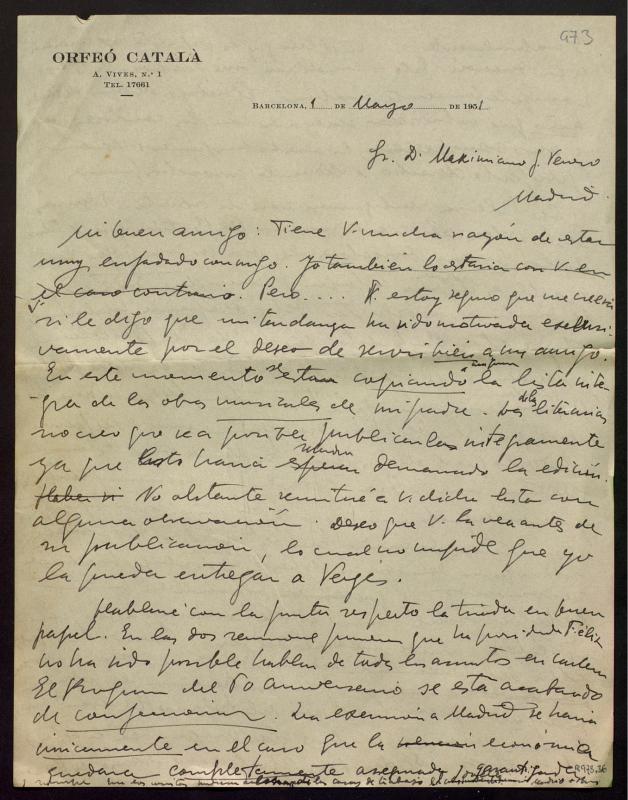 973
ORFEÓ CATALÀ
A. VIVES, N.º 1
TEL. 17661
BARCELONA, 1 DE Mayo DE 1951
Sr. D. Maximiano G. Venero
Madrid.
Mi buen amigo: Tiene V. mucha razón de estar
muy enfadado conmigo. Yo también lo estaria con V. en
el caso contrario. Pero.... estoy seguro que me creerá
V. si le digo que mi tardanza ha sido motivada exclusi-
vamente por el deseo de servir bien a un amigo.
En este momento se está copiando la lista inte-
gra de las obras musicales de mi padre. de las literarias
no creo que sea posible publicarlas integramente
ya que esto haria demasiado la edición.
No obstante remitiré a V. dicha lista con
alguna observación. Deseo que V. la vea antes de
su publicación, lo cual no impide que yo
la pueda entregar a Vergés.
Hablaré con la junta respecto la tirada en buen
papel. En las dos reuniones que ha presidido Félix
no ha sido posible hablar de todos los asuntos en cartera
El Program del 60 aniversario se está acabando
de confeccionar. La excursión a Madrid se haria
únicamente en el caso que la economia
quedara completamente asegurada
R973,36